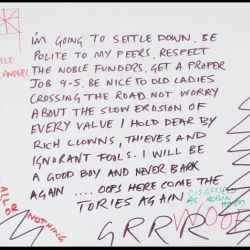 I'M GOING TO SETTLE DOWN. BE
POLITE TO MY PEERS, RESPECT
THE NOBLE FUNDERS, GET A PROPER
JOB 9-5, BE NICE TO OLD LADIES
CROSSING THE ROAD. NOT WORRY
ABOUT THE SLOW EROSION OF
EVERY VALUE I HOLD DEAR BY
RICH CLOWNS, THIEVES AND
IGNORANT FOOLS. I WILL BE
A GOOD BOY AND NEVER BARK
AGAIN .... OOPS HERE COME THE
TORIES AGAIN
DISGUISED
AS ROBIN
HOOD
WOOF
GRRR
ALL OR
NOTHING